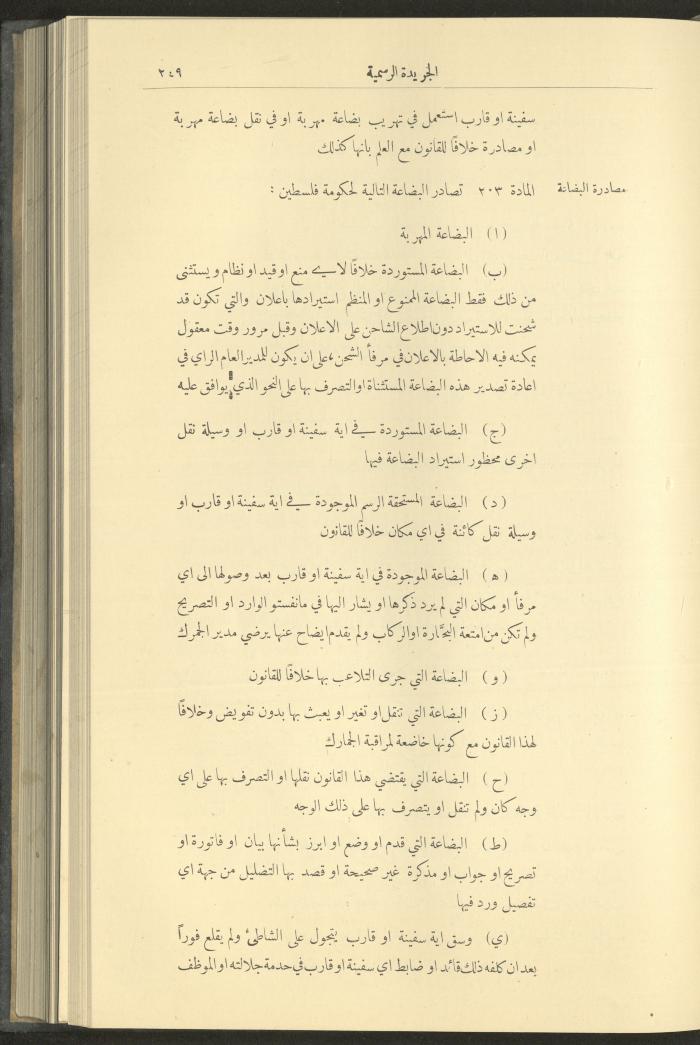 الجريدة الرسمية ٢٤٩
سفينة او قارب استعمل في تهريب بضاعة مهربة او في نقل بضاعة مهربة
او مصادرة خلافًا للقانون مع العلم بانها كذلك
مصادرة البضاعة المادة ٢٠٣ تصادر البضاعة التالية لحكومة فلسطين :
(ا) البضاعة المهربة
(ب) البضاعة المستوردة خلافًا لاي منع او قيد او نظام ويستثنى
من ذلك فقط البضاعة الممنوع او المنظم استيرادها باعلان والتي تكون قد
شحنت للاستيراد دون اطلاع الشاحن على الاعلان وقبل مرور وقت معقول
يمكنه فيه الاحاطة بالاعلان في مرفأ الشحن، على ان يكون للمدير العام الراي في
اعادة تصدير هذه البضاعة المستثناة او التصرف بها على النحو الذي يوافق عليه
(ج) البضاعة المستوردة في اية سفينة او قارب او وسيلة نقل
اخرى محظور استيراد البضاعة فيها
(د) البضاعة المستحقة الرسم الموجودة في اية سفينة او قارب او
وسيلة نقل كائنة في اي مكان خلافًا للقانون
(ه) البضاعة الموجودة في اية سفينة او قارب بعد وصولها الى اي
مرفأ او مكان التي لم يرد ذكرها او يشار اليها في مانفستو الوارد او التصريح
ولم تكن من امتعة البحَّارة او الركاب ولم يقدم ايضاح عنها يرضي مدير الجمرك
(و) البضاعة التي جرى التلاعب بها خلافًا للقانون
(ز) البضاعة التي تنقل او تغير او يعبث بها بدون تفويض وخلافًا
لهذا القانون مع كونها خاضعة لمراقبة الجمارك
(ح) البضاعة التي يقتضي هذا القانون نقلها او التصرف بها على اي
وجه كان ولم تنقل او يتصرف بها على ذلك الوجه
(ط) البضاعة التي قدم او وضع او ابرز بشأنها بيان او فاتورة او
تصريح او جواب او مذكرة غير صحيحة او قصد بها التضليل من جهة اي
تفصيل ورد فيها
(ي) وسق اية سفينة او قارب يتجول على الشاطئ ولم يقلع فوراً
بعد ان كلفه ذلك قائد او ضابط اي سفينة او قارب في خدمة جلالته او الموظف